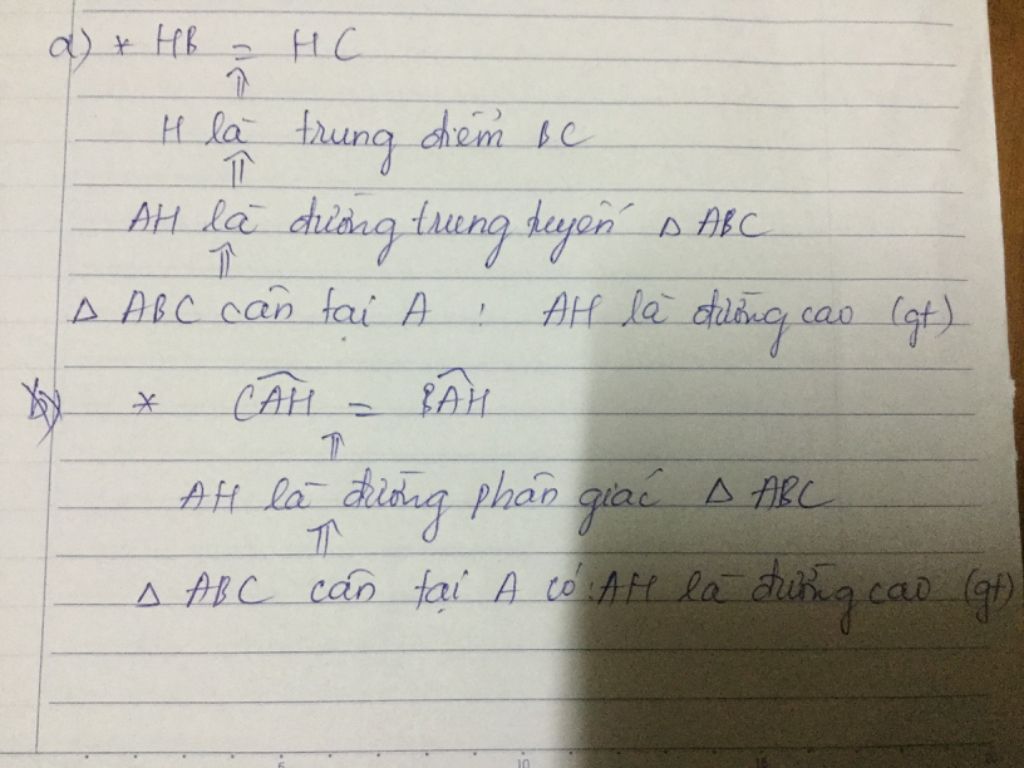 a) * HB = HC
⇑
H là trung điểm BC
⇑
AH là đường trung tuyến △ ABC
⇑
△ ABC cân tại A : AH là đường cao (gt)
* CAH = BAH
⇑
AH là đường phân giác △ ABC
⇑
△ ABC cân tại A có: AH là đường cao (gt)
5 10 15 20